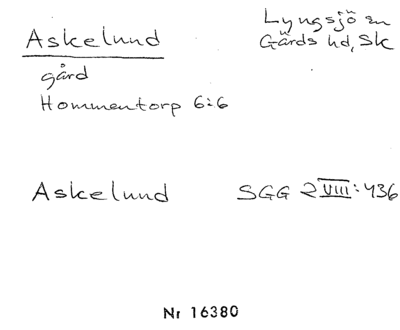 Askelund
Lyngsjö sn
Gärds hd, Sk
gård
Hommentorp 6:6
Askelund
SGG 2 VIII: 436
Nr 16380